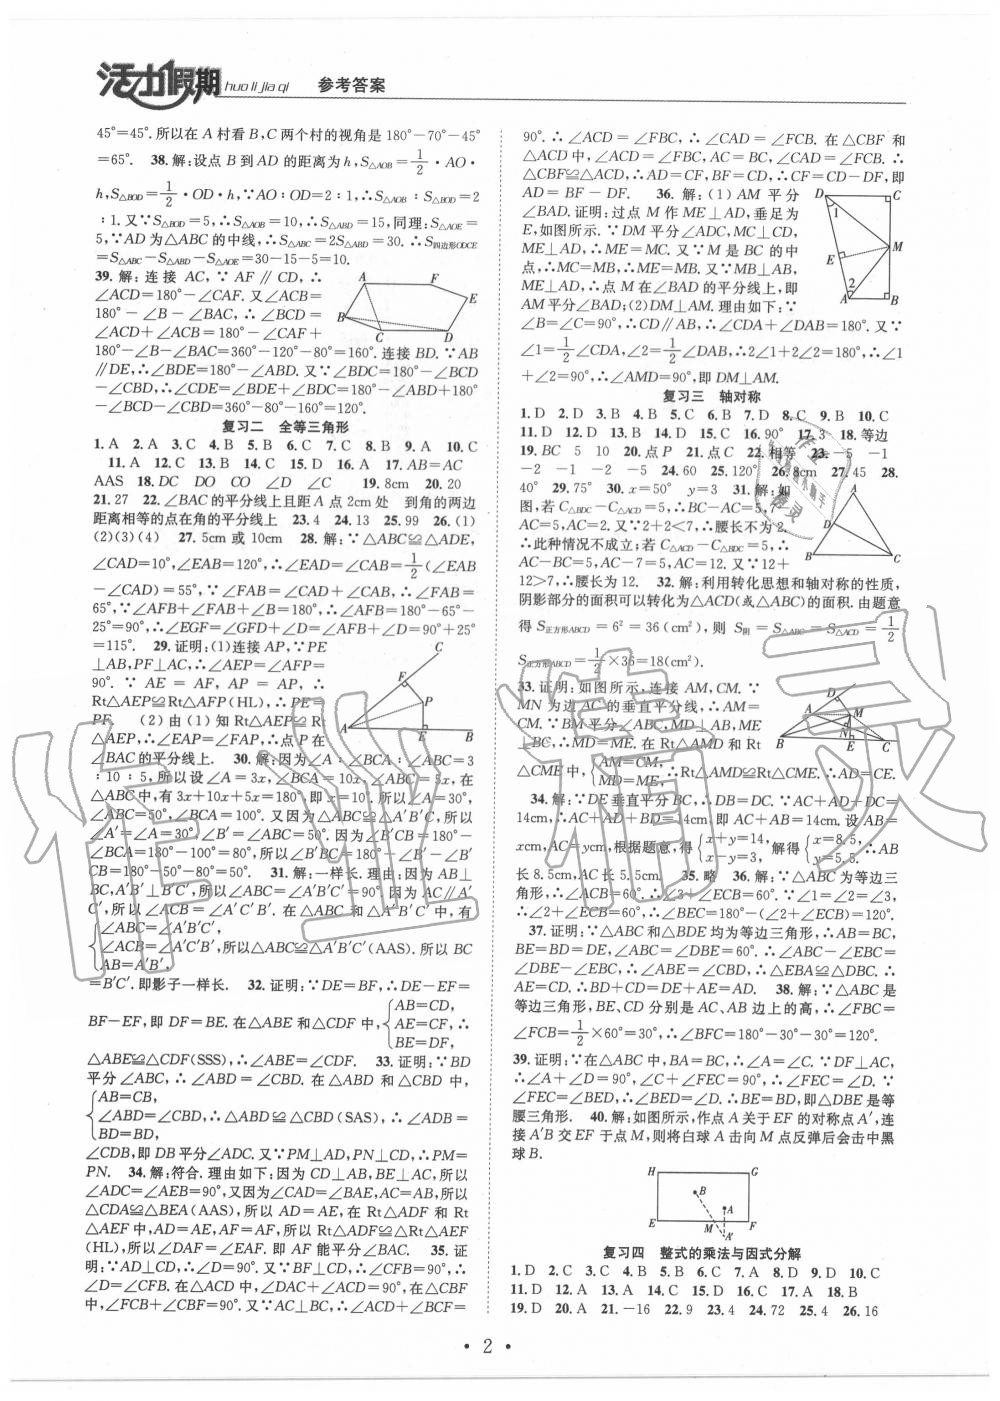 活力假期 huo li jia qi 参考答案
45°=45°.所以在A村看B,C两个村的视角是180°-70°-45°
=65°. 38.解:设点B到AD的距离为h,S△AOB=1/2·AO·
h,S△BOD=1/2·OD·h,∵AO∶OD=2∶1,∴S△AOB∶S△BOD=2
∶1.又∵S△BOD=5,∴S△AOB=10,∴S△ABD=15,同理:S△AOE=
5,∵AD为△ABC的中线,∴S△ABC=2S△ABD=30.∴S四边形ODCE
=S△ABC-S△ABD-S△AOE=30-15-5=10.
39.解:连接AC,∵AF∥CD,∴
∠ACD=180°-∠CAF.又∠ACB=
180°-∠B-∠BAC,∴∠BCD=
∠ACD+∠ACB=180°-∠CAF+
180°-∠B-∠BAC=360°-120°-80°=160°.连接BD.∵AB
∥DE,∴∠BDE=180°-∠ABD.又∵∠BDC=180°-∠BCD
-∠CBD,∴∠CDE=∠BDE+∠BDC=180°-∠ABD+180°
-∠BCD-∠CBD=360°-80°-160°=120°.
A F E B C D
复习二 全等三角形
1.A 2.A 3.C 4.B 5.B 6.C 7.C 8.B 9.A 10.C
11.A 12.C 13.B 14.C 15.C 16.A 17.AB=AC
AAS 18.DC DO CO ∠D ∠C 19.8cm 20.20
21.27 22.∠BAC的平分线上且距A点2cm处 到角的两边
距离相等的点在角的平分线上 23.4 24.13 25.99 26.(1)
(2)(3)(4) 27.5cm或10cm 28.解:∵△ABC≌△ADE,
∠CAD=10°,∠EAB=120°,∴∠EAD=∠CAB=1/2(∠EAB
-∠CAD)=55°,∵∠FAB=∠CAD+∠CAB,∴∠FAB=
65°.∵∠AFB+∠FAB+∠B=180°,∴∠AFB=180°-65°-
25°=90°,∴∠EGF=∠GFD+∠D=∠AFB+∠D=90°+25°
=115°. 29.证明:(1)连接AP,∵PE
⊥AB,PF⊥AC,∴∠AEP=∠AFP=
90°.∵AE=AF,AP=AP,∴
Rt△AEP≌Rt△AFP(HL),∴PE=
PF. (2)由(1)知Rt△AEP≌Rt
△AEP,∴∠EAP=∠FAP,∴点P在
∠BAC的平分线上. 30.解:因为∠A∶∠BCA∶∠ABC=3
∶10∶5,所以设∠A=3x,∠BCA=10x,∠ABC=5x,在
△ABC中,有3x+10x+5x=180°,即x=10°.所以∠A=30°,
∠ABC=50°,∠BCA=100°.又因为△ABC≌△A′B′C,所以
∠A′=∠A=30°,∠B′=∠ABC=50°.因为∠B′CB=180°-
∠BCA=180°-100°=80°,所以∠B′BC=180°-∠B′-∠B′
CB=180°-50°-80°=50°. 31.解:一样长.理由:因为AB⊥
BC,A′B′⊥B′C′,所以∠ABC=∠A′B′C′=90°.因为AC∥A′
C′,所以∠ACB=∠A′C′B′.在△ABC和△A′B′C′中,有
∠ABC=∠A′B′C′,
∠ACB=∠A′C′B′,所以△ABC≌△A′B′C′(AAS).所以BC
AB=A′B′,
=B′C′.即影子一样长. 32.证明:∵DE=BF,∴DE-EF=
BF-EF,即DF=BE.在△ABE和△CDF中,
AB=CD,
AE=CF,∴
BE=DF,
△ABE≌△CDF(SSS),∴∠ABE=∠CDF. 33.证明:∵BD
平分∠ABC,∴∠ABD=∠CBD,在△ABD和△CBD中,
AB=CB,
∠ABD=∠CBD,∴△ABD≌△CBD(SAS),∴∠ADB=
BD=BD,
∠CDB,即DB平分∠ADC.又∵PM⊥AD,PN⊥CD,∴PM=
PN. 34.解:符合.理由如下:因为CD⊥AB,BE⊥AC,所以
∠ADC=∠AEB=90°,又因为∠CAD=∠BAE,AC=AB,所以
△CDA≌△BEA(AAS),所以AD=AE,在Rt△ADF和Rt
△AEF中,AD=AE,AF=AF,所以Rt△ADF≌Rt△AEF
(HL),所以∠DAF=∠EAF.即AF能平分∠BAC. 35.证
明:∵AD⊥CD,∴∠D=90°.又∵BF⊥CD,∴∠CFB=90°,∴
∠D=∠CFB.在△ACD中,∠DAC+∠ACD=90°.在△CBF
中,∠FCB+∠CBF=90°.又∵AC⊥BC,∴∠ACD+∠BCF=
90°.∴∠ACD=∠FBC,∴∠CAD=∠FCB.在△CBF和
△ACD中,∠ACD=∠FBC,AC=BC,∠CAD=∠FCB.∴
△CBF≌△ACD,∴AD=CF,BF=CD,∴CF=CD-DF,即
AD=BF-DF. 36.解:(1)AM平分
∠BAD.证明:过点M作ME⊥AD,垂足为
E,如图所示.∵DM平分∠ADC,MC⊥CD,
ME⊥AD,∴ME=MC.又∵M是BC的中
点,∴MC=MB,∴ME=MB.又∵MB⊥AB,
ME⊥AD,∴点M在∠BAD的平分线上,即
AM平分∠BAD;(2)DM⊥AM.理由如下:∵
∠B=∠C=90°,∴CD∥AB,∴∠CDA+∠DAB=180°.又∵
∠1=1/2∠CDA,∠2=1/2∠DAB,∴2∠1+2∠2=180°,∴∠1
+∠2=90°,∴∠AMD=90°,即DM⊥AM.
D C 1 M E 2 A B
复习三 轴对称
1.D 2.D 3.D 4.B 5.C 6.B 7.D 8.C 9.B 10.C
11.D 12.D 13.B 14.D 15.C 16.90° 17.3 18.等边
19.BC 5 10 20.点P 21.点C 22.相等 23.-5 -1
-2 -1 -2 -5 24.60 25.120° 26.8cm 27.45 28.
40° 29.75° 30.x=50° y=3 31.解:如
图,若C△BDC-C△ACD=5,∴BC-AC=5,7-
AC=5,AC=2.又∵2+2<7,∴腰长不为2.
∴此种情况不成立;若C△ACD-C△BDC=5,∴
AC-BC=5,AC-7=5,AC=12.又∵12+
12>7,∴腰长为12. 32.解:利用转化思想和轴对称的性质,
阴影部分的面积可以转化为△ACD(或△ABC)的面积.由题意
得S正方形ABCD=6²=36(cm²),则S阴=S△ABC=S△ACD=1/2
S正方形ABCD=1/2×36=18(cm²).
A D B C
33.证明:如图所示,连接AM,CM.∵
MN为边AC的垂直平分线,∴AM=
CM.∵BM平分∠ABC,MD⊥AB,ME
⊥BC,∴MD=ME.在Rt△AMD和Rt
△CME中,
AM=CM,
MD=ME,
∴Rt△AMD≌Rt△CME.∴AD=CE.
34.解:∵DE垂直平分BC,∴DB=DC.∵AC+AD+DC=
14cm,∴AC+AD+BD=14cm,即AC+AB=14cm.设AB=
xcm,AC=ycm,根据题意,得
x+y=14,
x-y=3,
解得
x=8.5,
y=5.5.
∴AB
长8.5cm,AC长5.5cm. 35.略 36.解:∵△ABC为等边三
角形,∴∠ACB=60°.∴∠3+∠ECB=60°.∵∠1=∠2=∠3,
∴∠2+∠ECB=60°,∴∠BEC=180°-(∠2+∠ECB)=120°.
37.证明:∵△ABC和△BDE均为等边三角形,∴AB=BC,
BE=BD=DE,∠ABC=∠DBE=60°.∴∠ABC-∠EBC=
∠DBE-∠EBC,即∠ABE=∠CBD,∴△EBA≌△DBC.∴
AE=CD.∴BD+CD=DE+AE=AD. 38.解:∵△ABC是
等边三角形,BE,CD分别是AC、AB边上的高,∴∠FBC=
∠FCB=1/2×60°=30°,∴∠BFC=180°-30°-30°=120°.
39.证明:∵在△ABC中,BA=BC,∴∠A=∠C.∵DF⊥AC,
∴∠A+∠D=90°,∠C+∠FEC=90°.∴∠FEC=∠D.∵
∠FEC=∠BED,∴∠BED=∠D.∴BE=BD,即△DBE是等
腰三角形. 40.解:如图所示,作点A关于EF的对称点A′,连
接A′B交EF于点M,则将白球A击向M点反弹后会击中黑
球B.
H G B A E M F A′
复习四 整式的乘法与因式分解
1.D 2.C 3.C 4.B 5.B 6.C 7.A 8.D 9.D 10.C
11.D 12.D 13.A 14.C 15.D 16.C 17.A 18.B
19.D 20.A 21.-16 22.9 23.4 24.72 25.4 26.16
· 2 ·
作业精灵